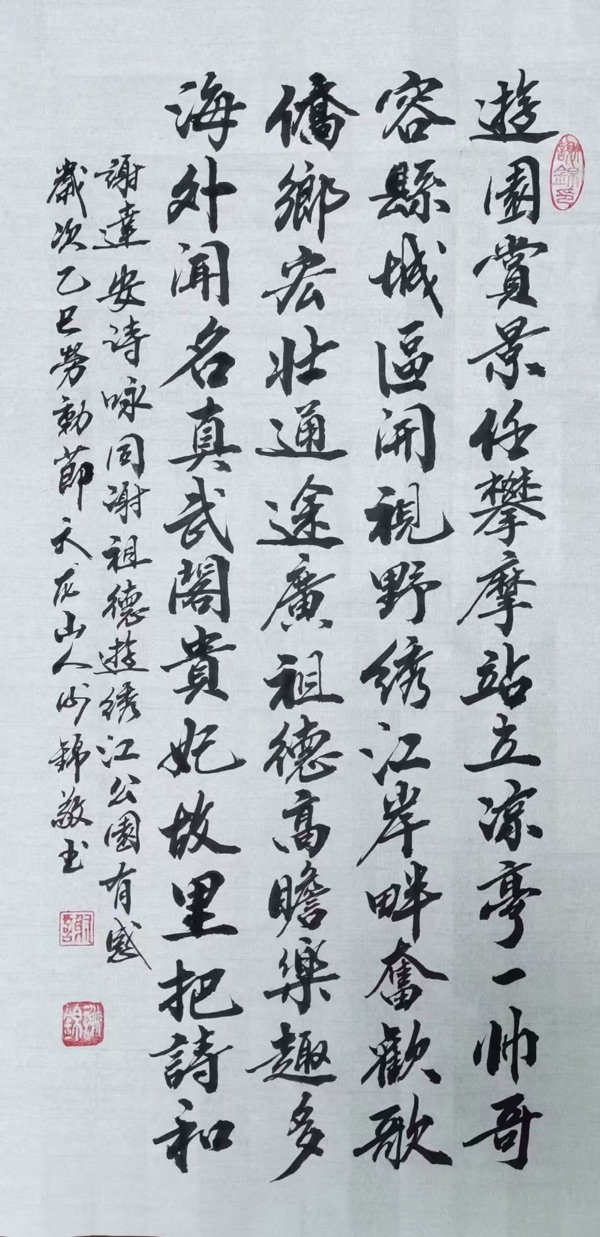 遊園賞景任攀摩站立涼亭一帅哥
容縣城區開視野绣江岸畔奮歡歌
僑鄉宏壯通途廣祖德高瞻樂趣多
海外闻名真武閣貴妃故里把詩和
謝達安诗咏同謝祖德遊绣江公園有感
歲次乙巳劳動節天龙山人 錦敬书